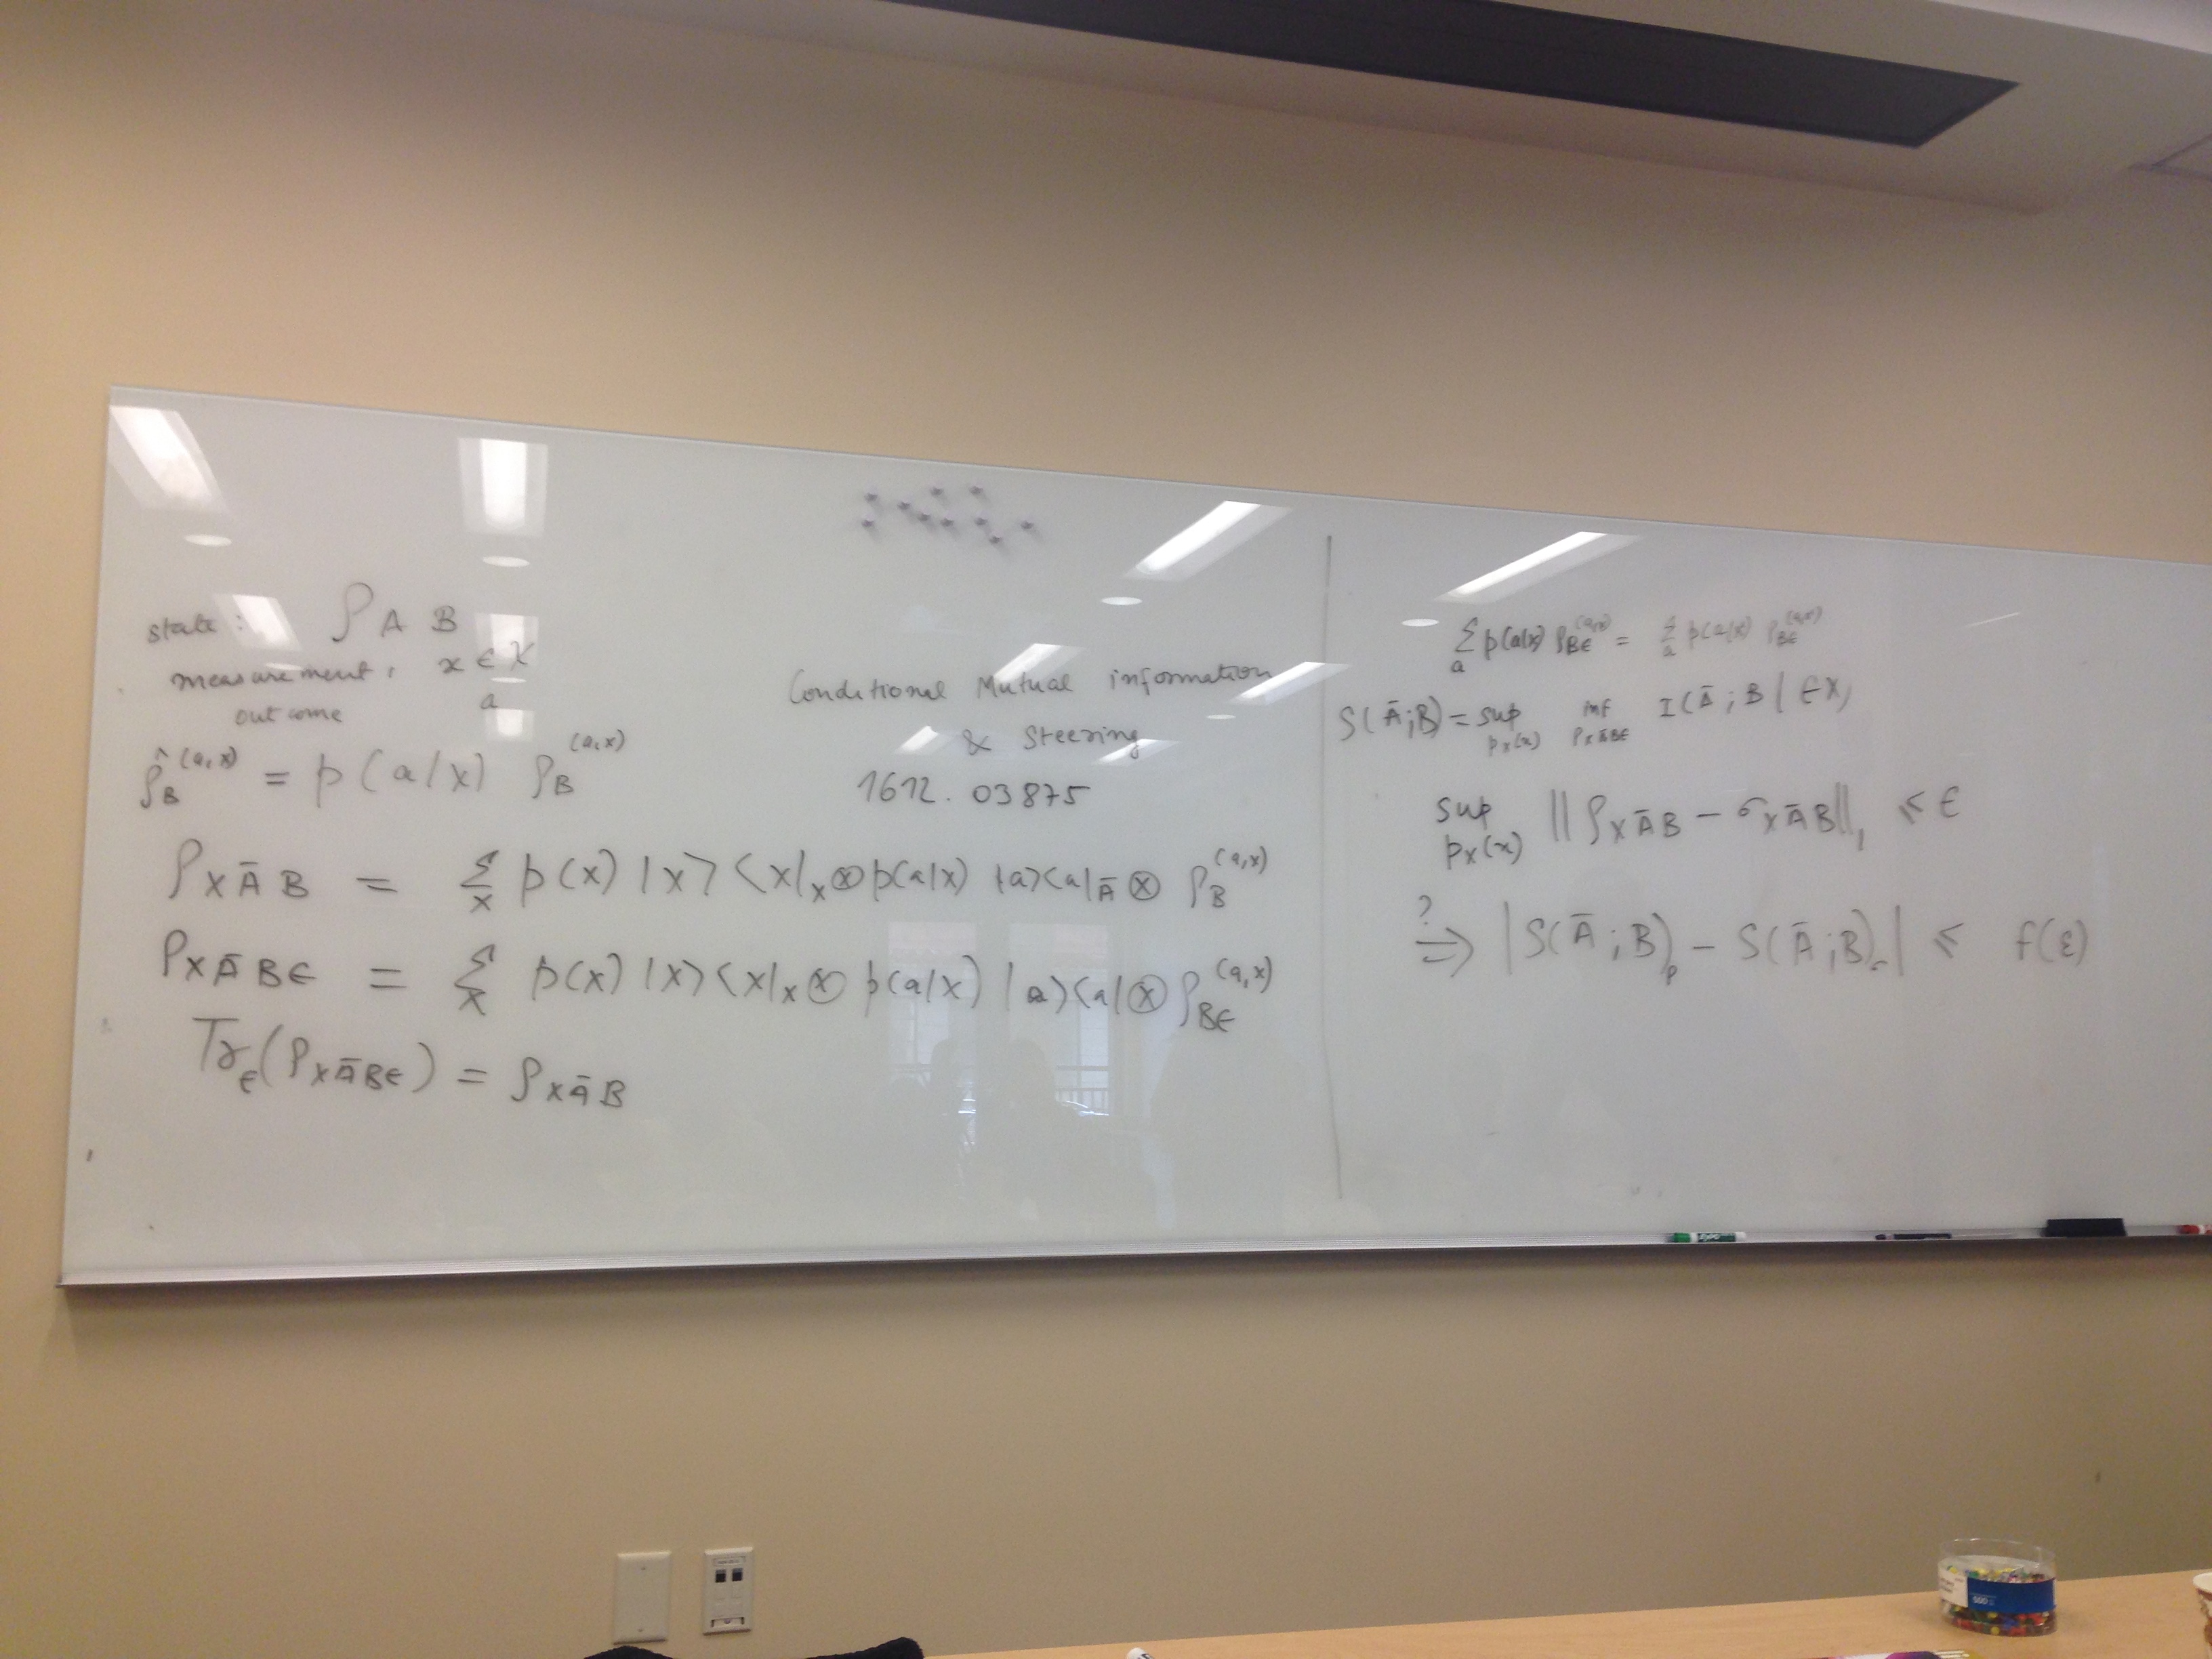 state : ρ A B
measurement, x ∈ X
outcome a
ρ̂_B^(a,x) = p(a|x) ρ_B^(a,x)
ρ_XĀB = Σ_x p(x) |x><x|_X ⊗ p(a|x) |a><a|_Ā ⊗ ρ_B^(a,x)
ρ_XĀBE = Σ_x p(x) |x><x|_X ⊗ p(a|x) |a><a| ⊗ ρ_BE^(a,x)
Tr_E(ρ_XĀBE) = ρ_XĀB
Conditional Mutual information
& Steering
1612.03875
Σ_a p(a|x) ρ_BE^(a,x) = Σ_a p(a|x) ρ_BE^(a,x)
S(Ā;B) = sup_{p_X(x)} inf_{ρ_XĀBE} I(Ā;B|EX)
sup_{p_X(x)} ||ρ_XĀB − σ_XĀB||_1 ≤ ε
? ⇒ |S(Ā;B)_ρ − S(Ā;B)_σ| ≤ f(ε)